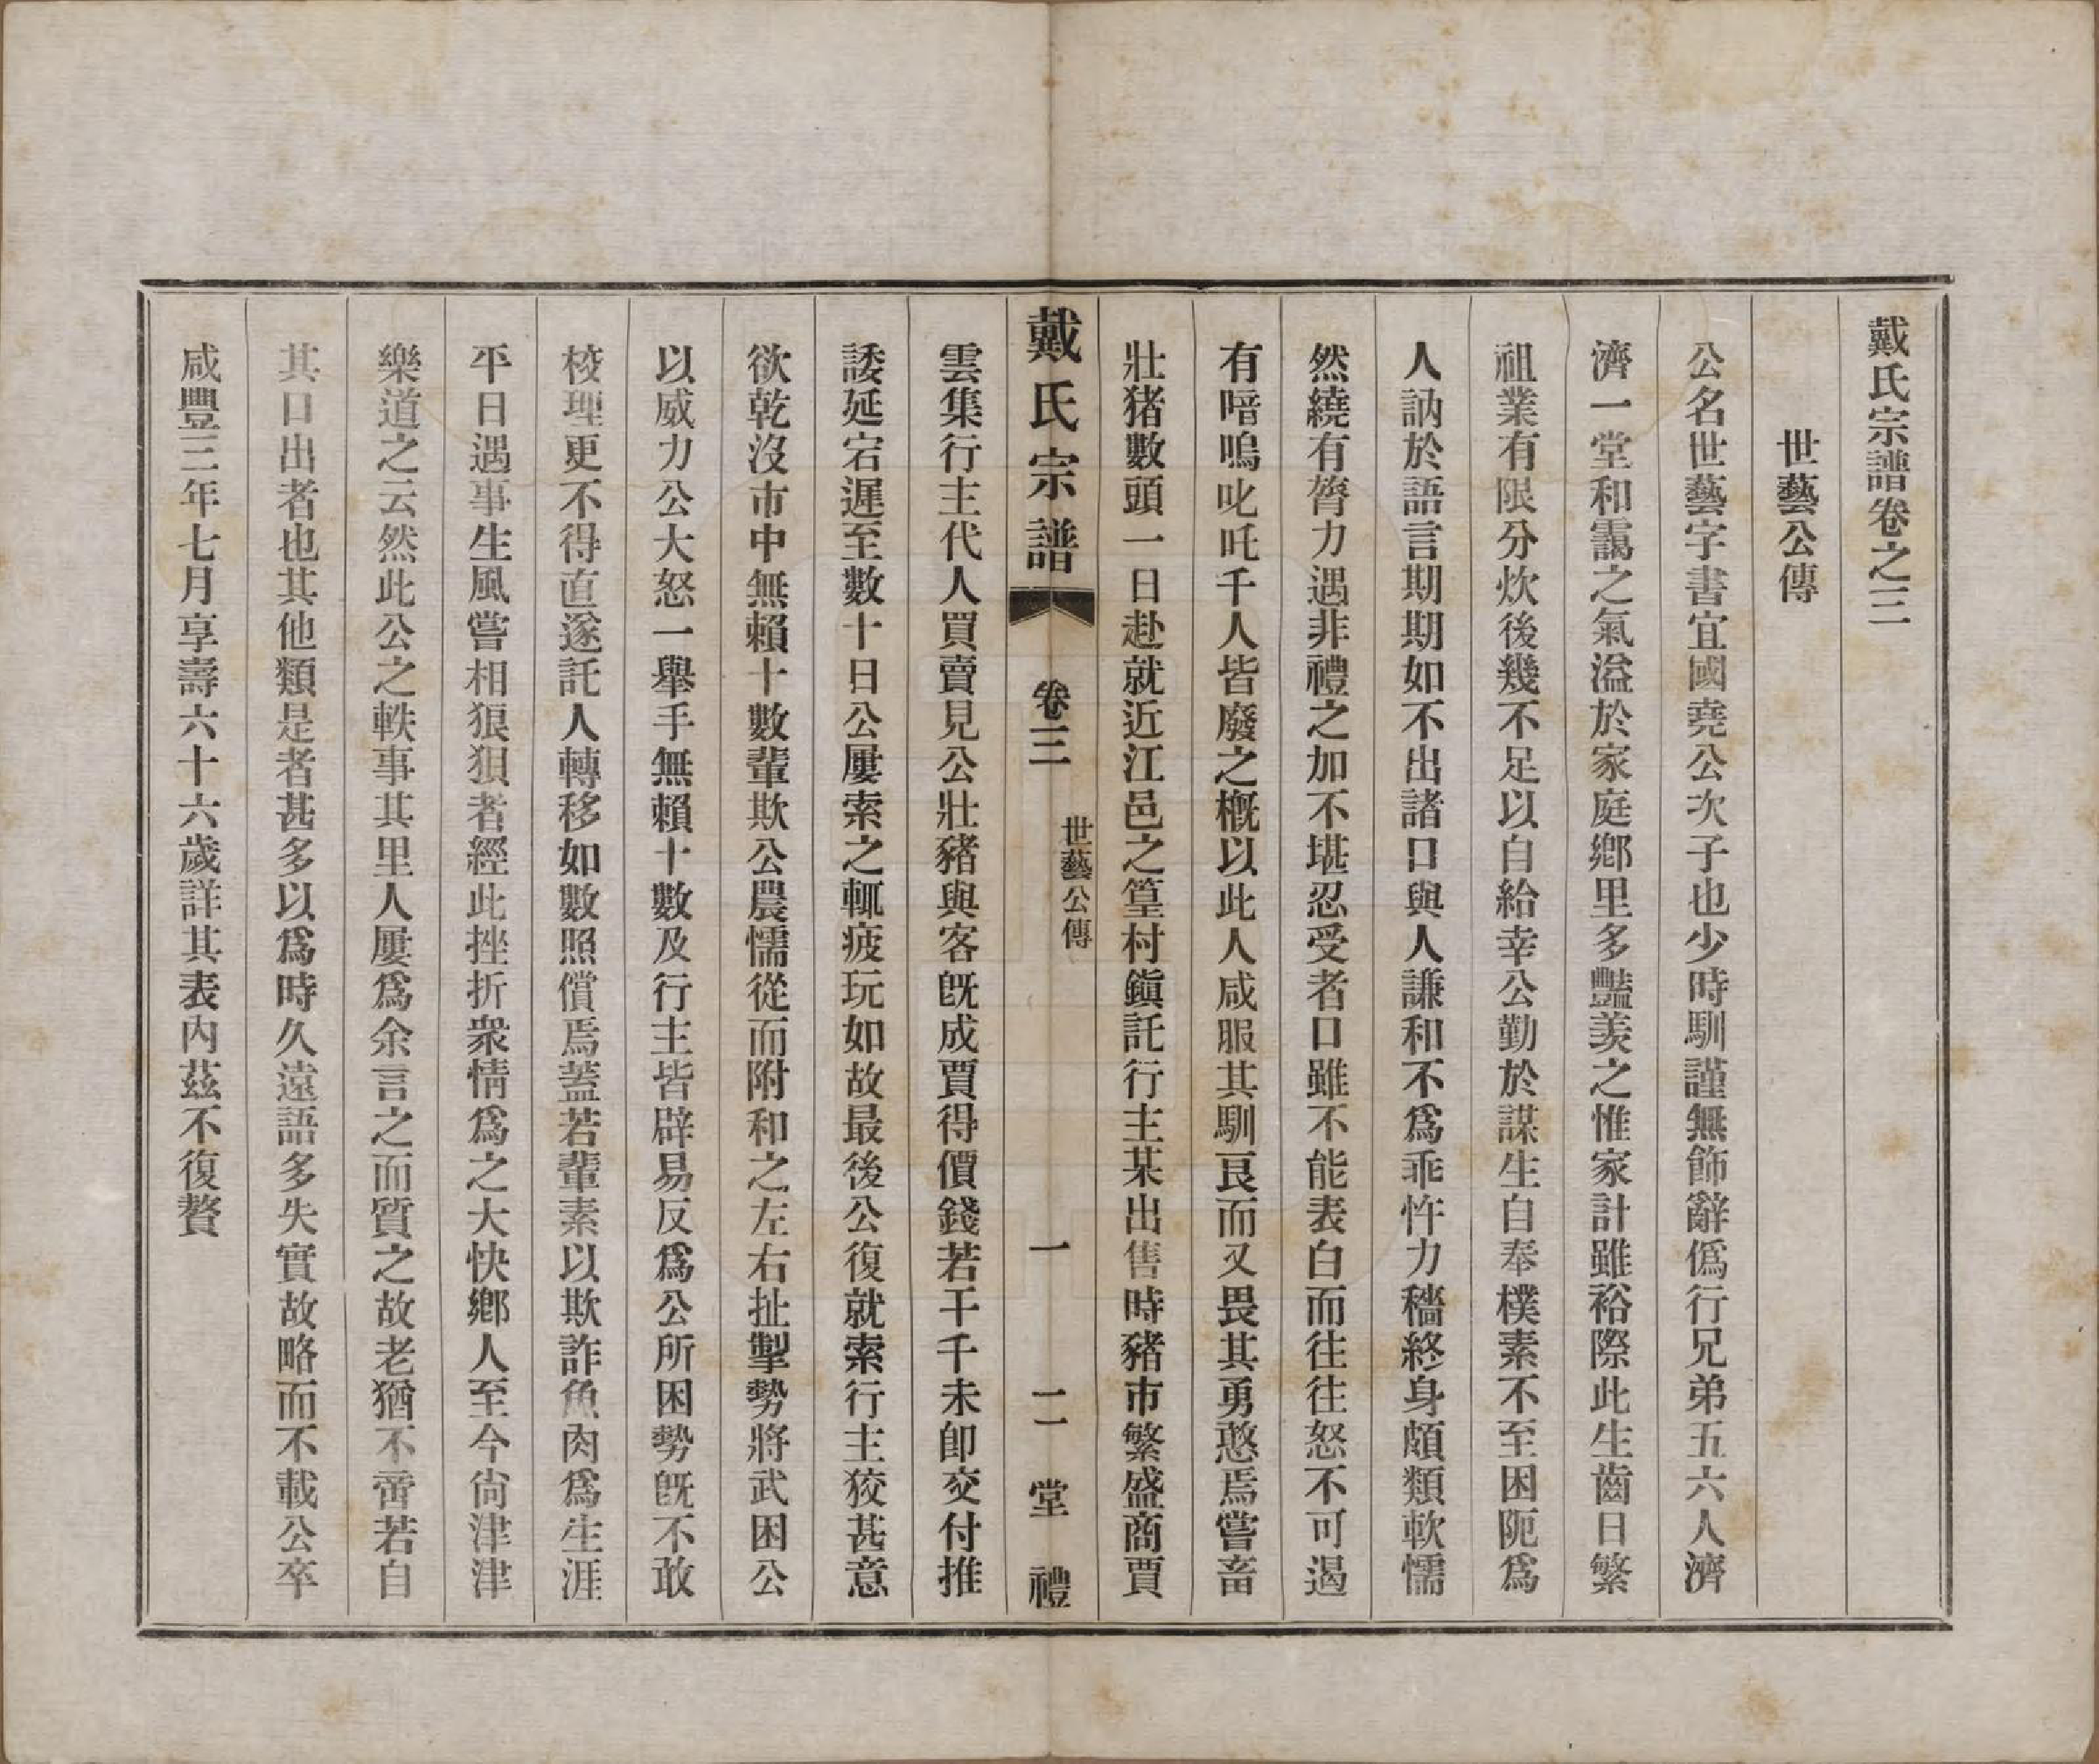 戴氏宗譜卷之三
世藝公傳
公名世藝字書宜國堯公次子也少時馴謹無飾辭僞行兄弟五六人濟
濟一堂和靄之氣溢於家庭鄉里多豔羨之惟家計雖裕際此生齒日繁
祖業有限分炊後幾不足以自給幸公勤於謀生自奉樸素不至困阨爲
人訥於語言期期如不出諸口與人謙和不爲乖忤力穡終身頗類軟懦
然繞有膂力遇非禮之加不堪忍受者口雖不能表白而往往怒不可遏
有喑嗚叱吒千人皆廢之槪以此人咸服其馴良而又畏其勇憨焉嘗畜
壯猪數頭一日赴就近江邑之篁村鎭託行主某出售時豬市繁盛商賈
戴氏宗譜 卷三 世藝公傳 一 二堂禮
雲集行主代人買賣見公壯豬與客旣成賈得價錢若干千未卽交付推
諉延宕遲至數十日公屢索之輒疲玩如故最後公復就索行主狡甚意
欲乾沒市中無賴十數輩欺公農懦從而附和之左右扯掣勢將武困公
以威力公大怒一舉手無賴十數及行主皆辟易反爲公所困勢旣不敢
校理更不得直遂託人轉移如數照償焉蓋若輩素以欺詐魚肉爲生涯
平日遇事生風嘗相狼狽者經此挫折衆情爲之大快鄉人至今尙津津
樂道之云然此公之軼事其里人屢爲余言之而質之故老猶不啻若自
其口出者也其他類是者甚多以爲時久遠語多失實故略而不載公卒
咸豐三年七月享壽六十六歲詳其表內茲不復贅